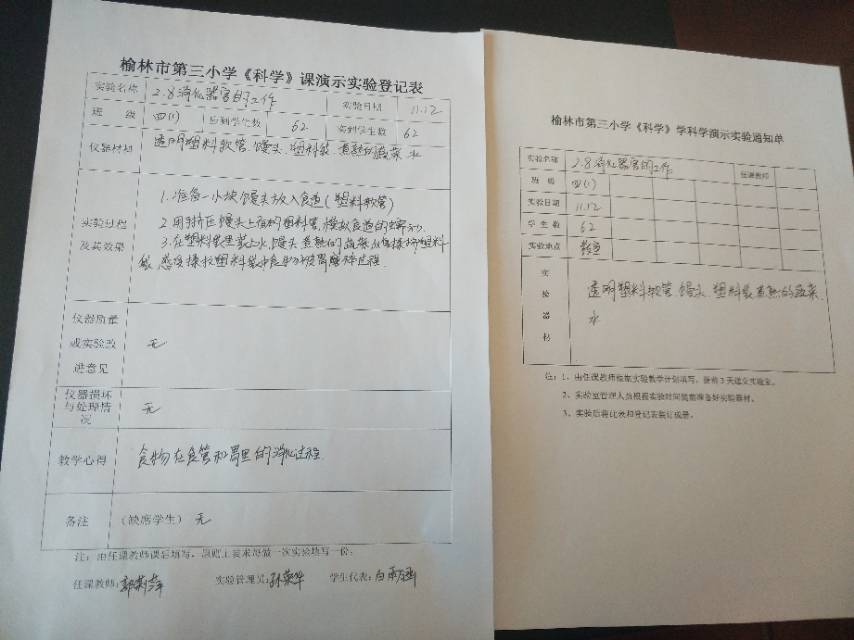 榆林市第三小学《科学》课演示实验登记表
实验名称 2.8消化器官的工作 实验日期 11.12
班 级 四(1) 应到学生数 62 实到学生数 62
仪器材料 透明塑料软管、馒头、塑料袋、煮熟的蔬菜、水
1.准备一小块馒头放入食道(塑料软管)
实验过程
及其效果
2.用手挤压馒头上面的塑料管,模拟食道的蠕动
3.在塑料袋里装上水、馒头、煮熟的蔬菜
仪器质量
或实验改
进意见
无
仪器损坏
与处理情
况
无
教学心得 食物在食管和胃里的消化过程
备注 (缺席学生) 无
注:由任课教师课后填写,原则上要求每做一次实验填写一份。
任课教师: 实验管理员:孙荣华 学生代表:
榆林市第三小学《科学》学科学演示实验通知单
实验名称 2.8消化器官的工作 任课教师
班 级 四(1)
实验日期 11.12
学 生 数 62
实验地点 教室
实
验
器
材
透明塑料软管、馒头、塑料袋、煮熟的蔬菜、
水
注:1、由任课教师根据实验教学计划填写,提前3天送交实验室。
2、实验室管理人员根据实验时间提前准备好实验器材。
3、实验后将此表和登记表装订成册。